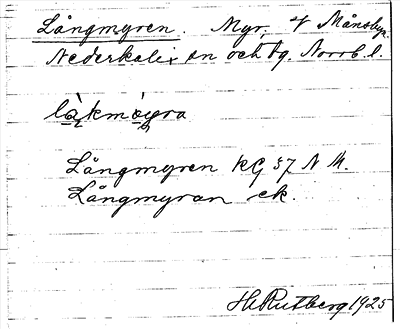 Långmyren. Myr, V Månsbyn.
Nederkalix sn och tg. Norrb. l.
Långmyren KG 57 N M.
Långmyran ek.
H. Rutberg 1925